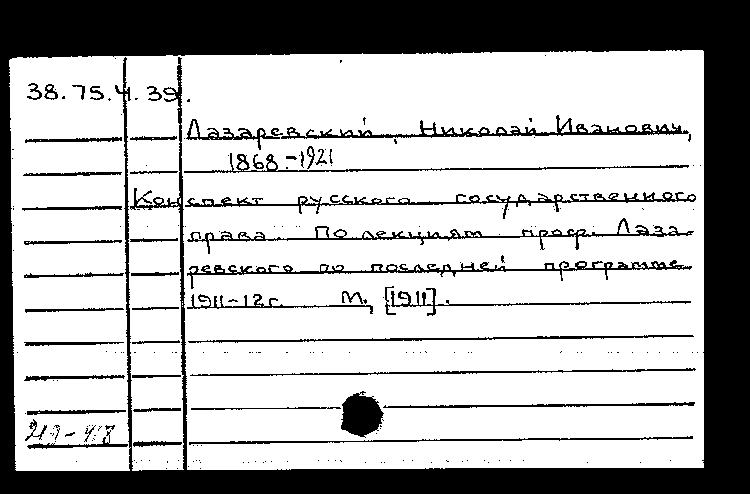 38.75.4.39.
Лазаревский, Николай Иванович,
1868-1921
Конспект русского государственного
права. По лекциям проф. Лаза-
ревского по последней программе
1911-12 г. М., [1911].